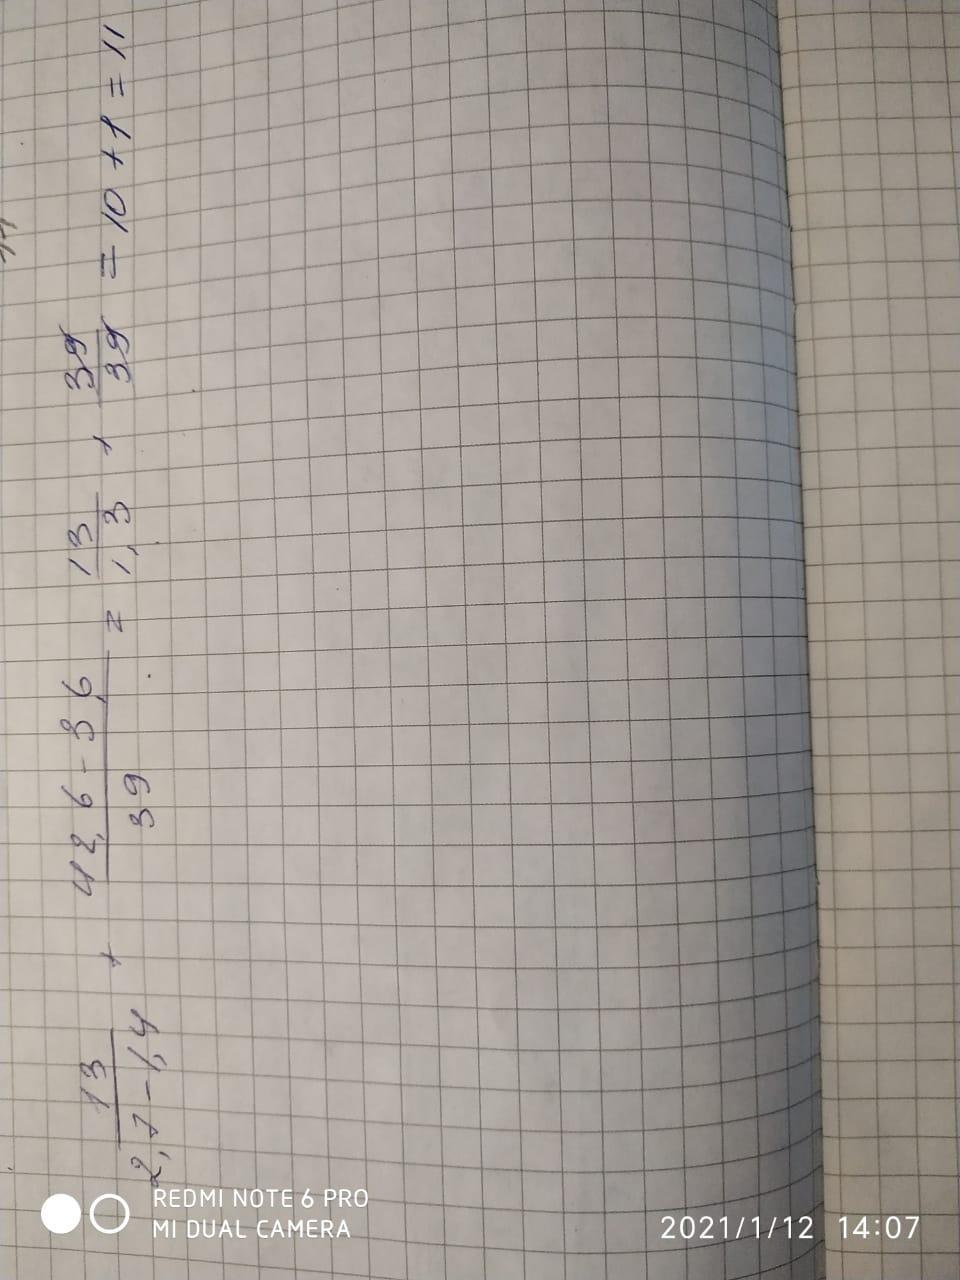 13/(2,7-1,4) + (42,6-3,6)/39 = 13/1,3 + 39/39 = 10+1=11
REDMI NOTE 6 PRO
MI DUAL CAMERA
2021/1/12 14:07